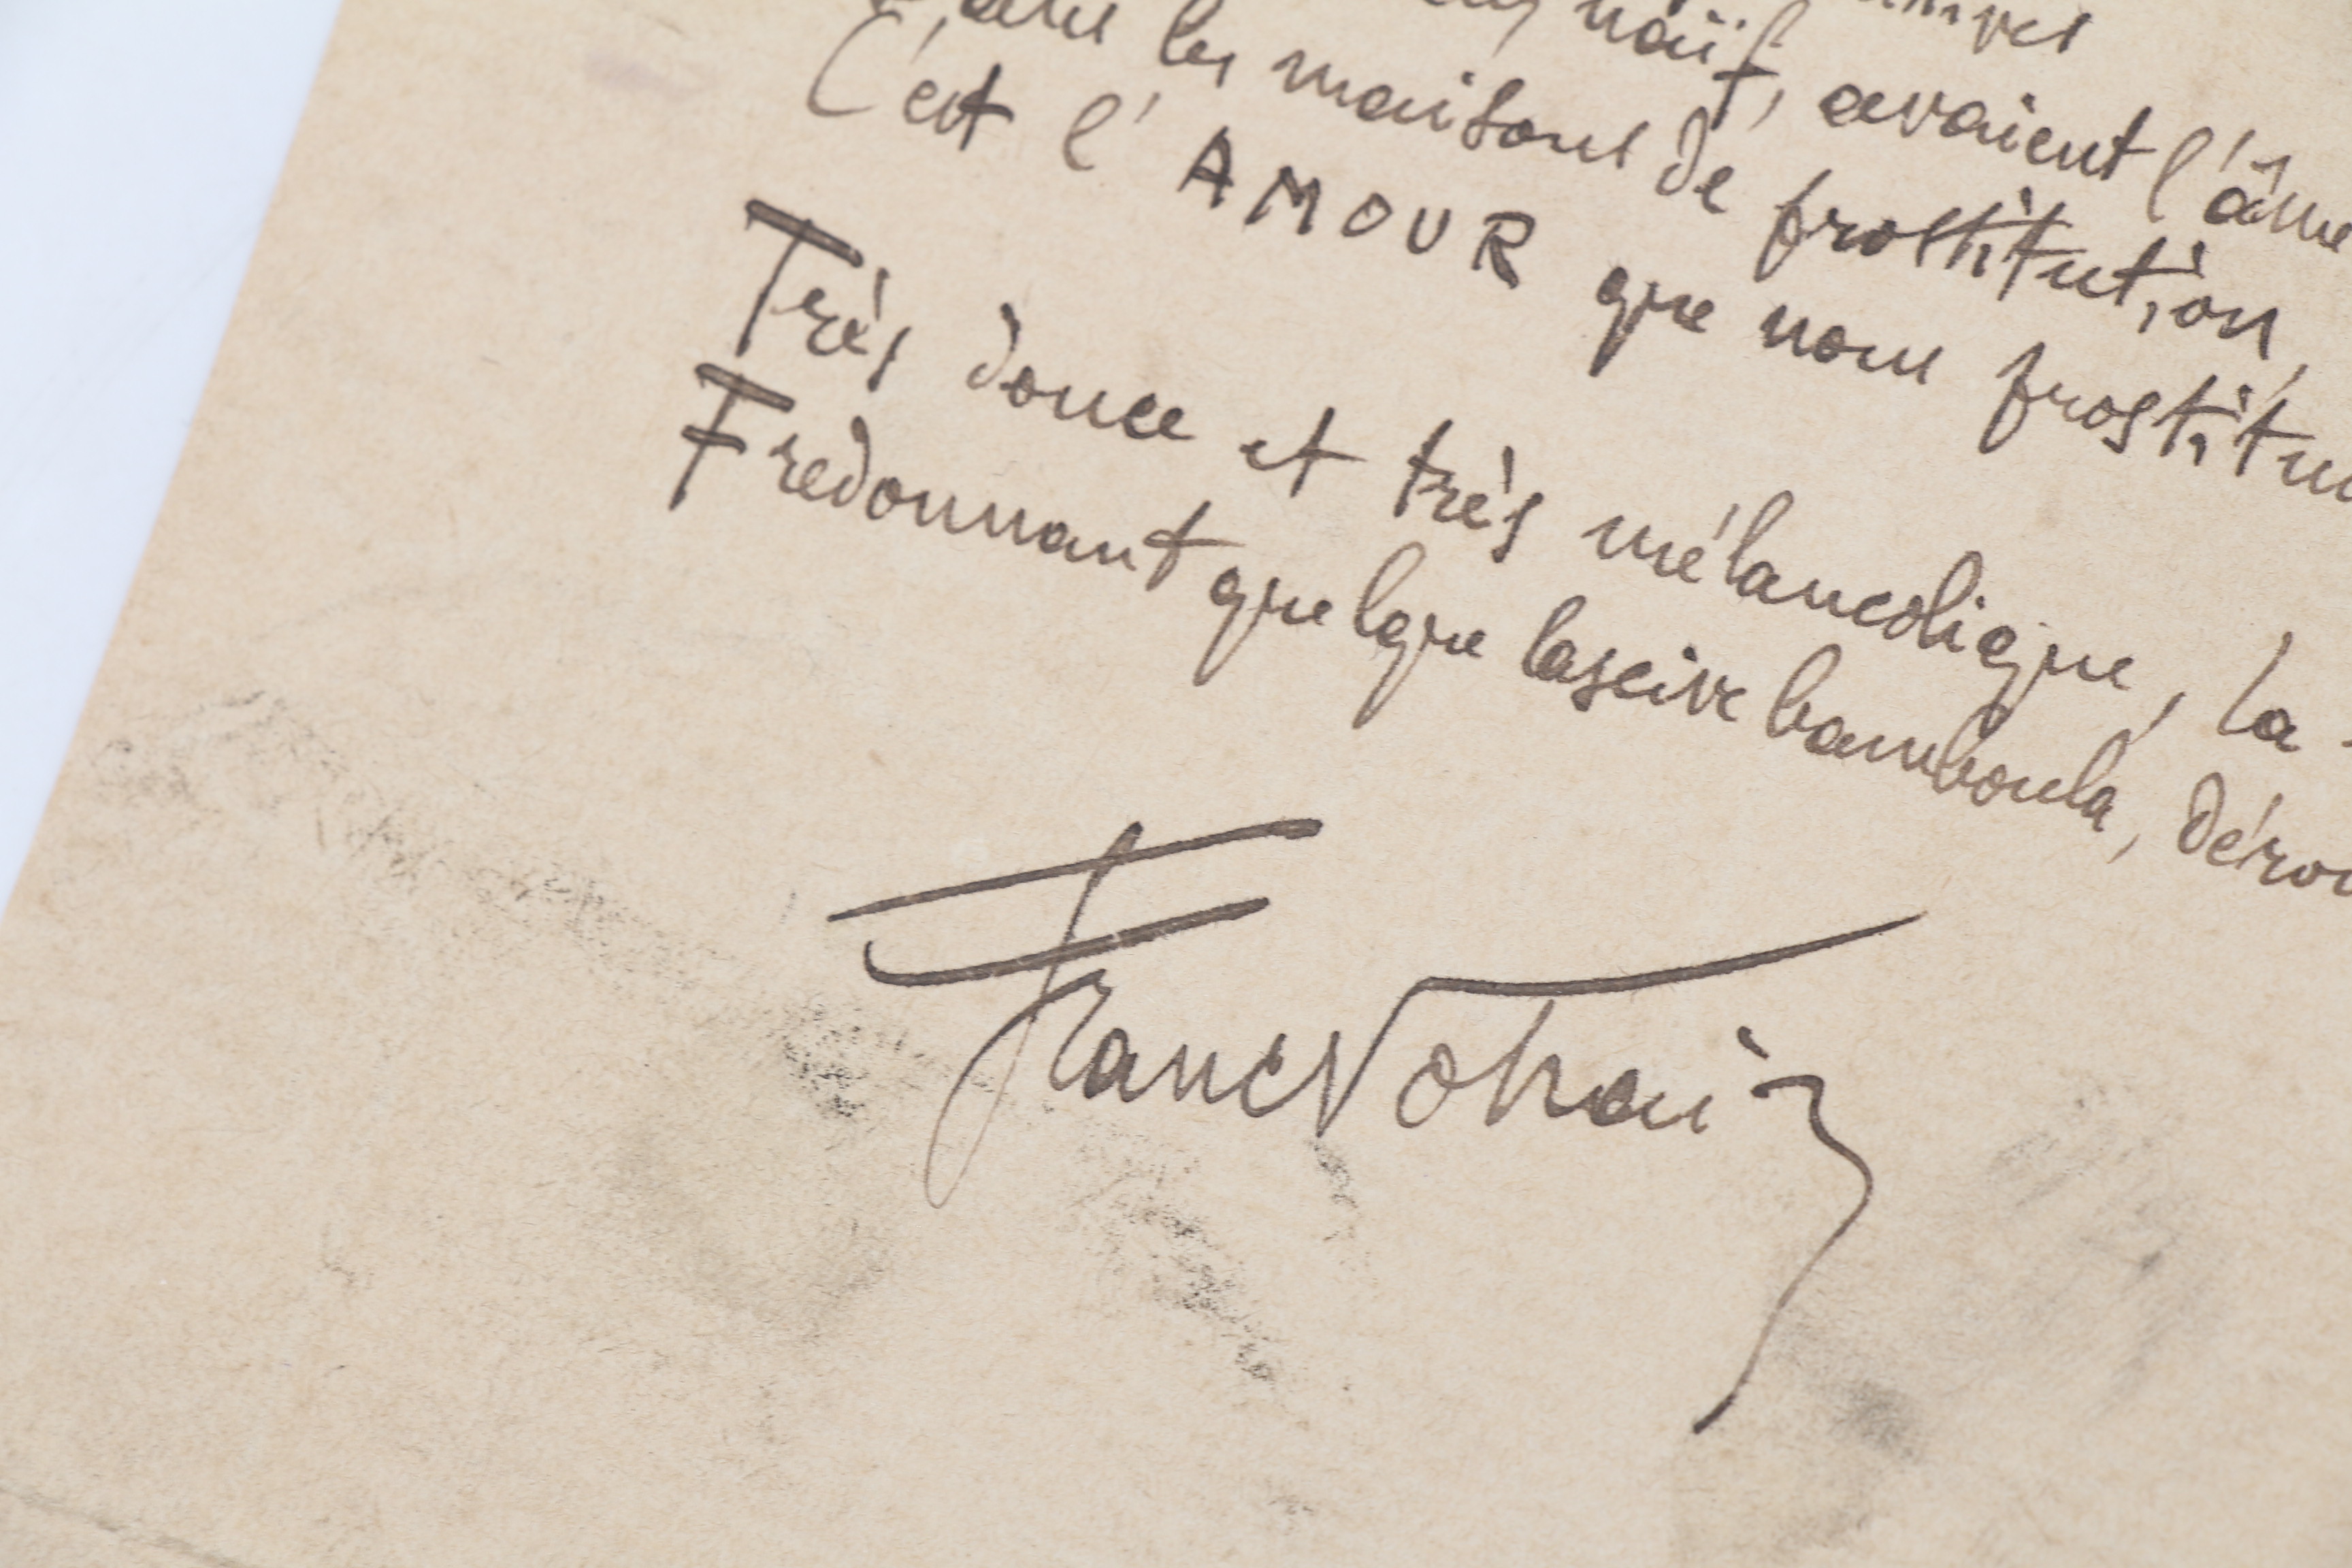 naïf, avaient l'âme
les maisons de prostitution,
C'est l'AMOUR que nous prostitu
Très douce et très mélancolique, la
Fredonnant quelque lascive bamboula, déro
Franc Nohain